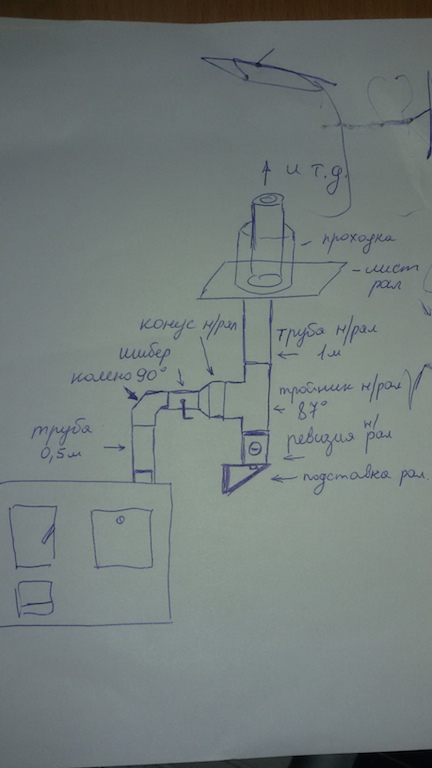 и т.д.
проходка
лист
рал
конус н/рал
труба н/рал
1м
шибер
колено 90°
тройник н/рал
87°
труба
0,5м
ревизия н/рал
подставка рал.